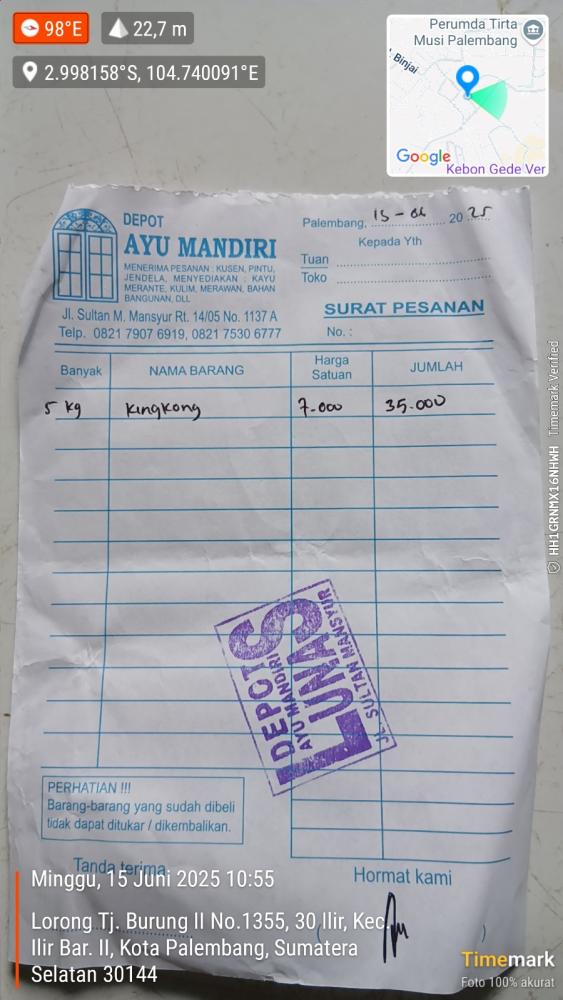 98°E
22,7 m
2.998158°S, 104.740091°E
Perumda Tirta
Musi Palembang
Binjai
Google
Kebon Gede Ver
DEPOT
AYU MANDIRI
MENERIMA PESANAN : KUSEN, PINTU,
JENDELA, MENYEDIAKAN : KAYU
MERANTE, KULIM, MERAWAN, BAHAN
BANGUNAN, DLL
Jl. Sultan M. Mansyur Rt. 14/05 No. 1137 A
Telp. 0821 7907 6919, 0821 7530 6777
Palembang, 15 - 06 20 25
Kepada Yth
Tuan
Toko
SURAT PESANAN
No. :
Banyak NAMA BARANG Harga Satuan JUMLAH
5 kg kingkong 7.000 35.000
DEPOTS
AYU MANDIRI
LUNAS
JL. SULTAN MANSYUR
PERHATIAN !!!
Barang-barang yang sudah dibeli
tidak dapat ditukar / dikembalikan.
Tanda terima
Hormat kami
Minggu, 15 Juni 2025 10:55
Lorong Tj. Burung II No.1355, 30 Ilir, Kec.
Ilir Bar. II, Kota Palembang, Sumatera
Selatan 30144
Timemark
Foto 100% akurat
HH1GRNMX16NHWH Timemark Verified